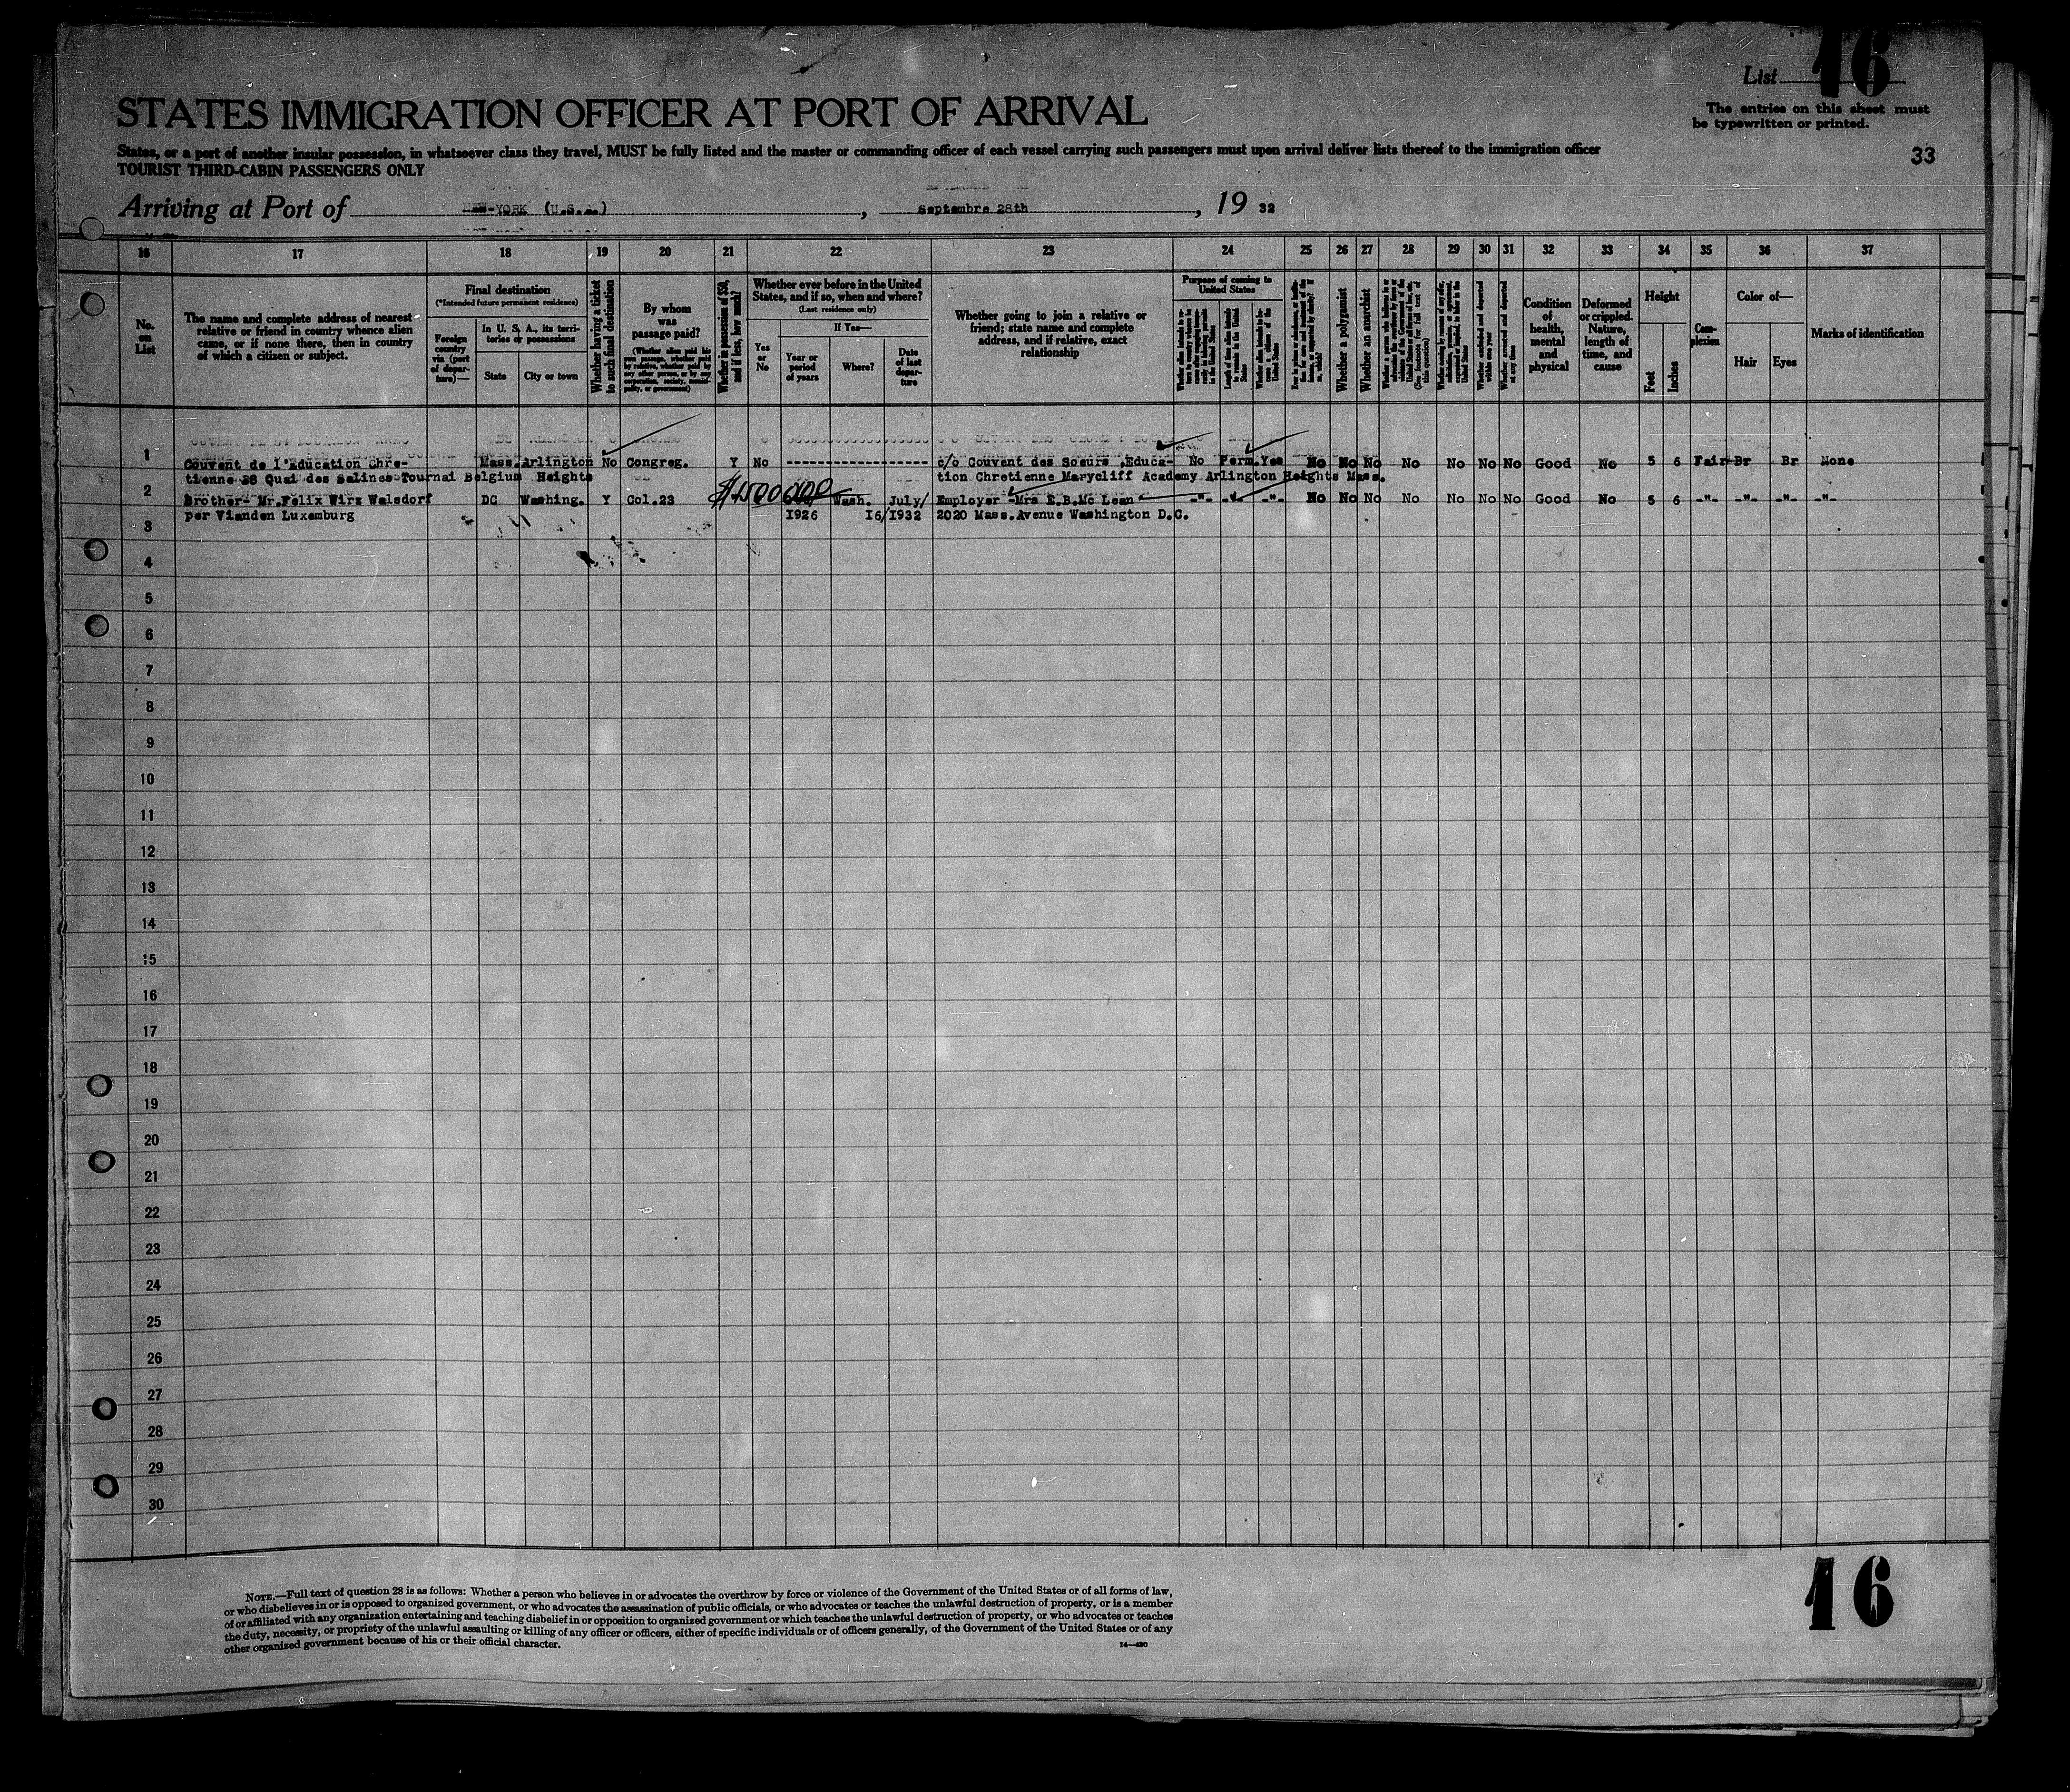 List 16
The entries on this sheet must
be typewritten or printed.
STATES IMMIGRATION OFFICER AT PORT OF ARRIVAL
33
States, or a port of another insular possession, in whatsoever class they travel, MUST be fully listed and the master or commanding officer of each vessel carrying such passengers must upon arrival deliver lists thereof to the immigration officer
TOURIST THIRD-CABIN PASSENGERS ONLY
Arriving at Port of NEW-YORK (U.S.A.), septembre 28th, 19 32
16 17 18 19 20 21 22 23 24 25 26 27 28 29 30 31 32 33 34 35 36 37
No. on List
The name and complete address of nearest
relative or friend in country whence alien
came, or if none there, then in country
of which a citizen or subject.
Final destination
(*Intended future permanent residence)
Foreign country via (port of departure)—
In U. S. A., its territories or possessions
State
City or town
Whether having a ticket to such final destination
By whom was passage paid?
(Whether alien paid his own passage, whether paid by relative, whether paid by any other person, or by any corporation, society, municipality, or government)
Whether in possession of $50, and if less, how much?
Whether ever before in the United
States, and if so, when and where?
(Last residence only)
Yes or No
If Yes—
Year or period of years
Where?
Date of last departure
Whether going to join a relative or
friend; state name and complete
address, and if relative, exact
relationship
Purpose of coming to United States
Whether a polygamist
Whether an anarchist
Condition of health, mental and physical
Deformed or crippled. Nature, length of time, and cause
Height
Feet
Inches
Complexion
Color of—
Hair
Eyes
Marks of identification
1 Couvent de l'Education Chre- Mass. Arlington No Congreg. Y No c/o Couvent des Soeurs ,Educa- No Perm. Yes No No No No No No No Good No 5 6 Fair Br Br None
tienne 28 Quai des Salines Tournai Belgium Heights tion Chretienne Marycliff Academy Arlington Heights Mass.
2 Brother- Mr.Felix Wirz Walsdorf DC Washing. Y Col.23 Wash. July/ Employer -Mrs E.B.Mc Lean -"- -"- No No No No No No No Good No 5 6 -"- -"- -"- -"-
per Vianden Luxemburg 1926 16/1932 2020 Mass.Avenue Washington D.C.
3
4
5
6
7
8
9
10
11
12
13
14
15
16
17
18
19
20
21
22
23
24
25
26
27
28
29
30
NOTE.—Full text of question 28 is as follows: Whether a person who believes in or advocates the overthrow by force or violence of the Government of the United States or of all forms of law,
or who disbelieves in or is opposed to organized government, or who advocates the assassination of public officials, or who advocates or teaches the unlawful destruction of property, or is a member
of or affiliated with any organization entertaining and teaching disbelief in or opposition to organized government or which teaches the unlawful destruction of property, or who advocates or teaches
the duty, necessity, or propriety of the unlawful assaulting or killing of any officer or officers, either of specific individuals or of officers generally, of the Government of the United States or of any
other organized government because of his or their official character.
14—420
16